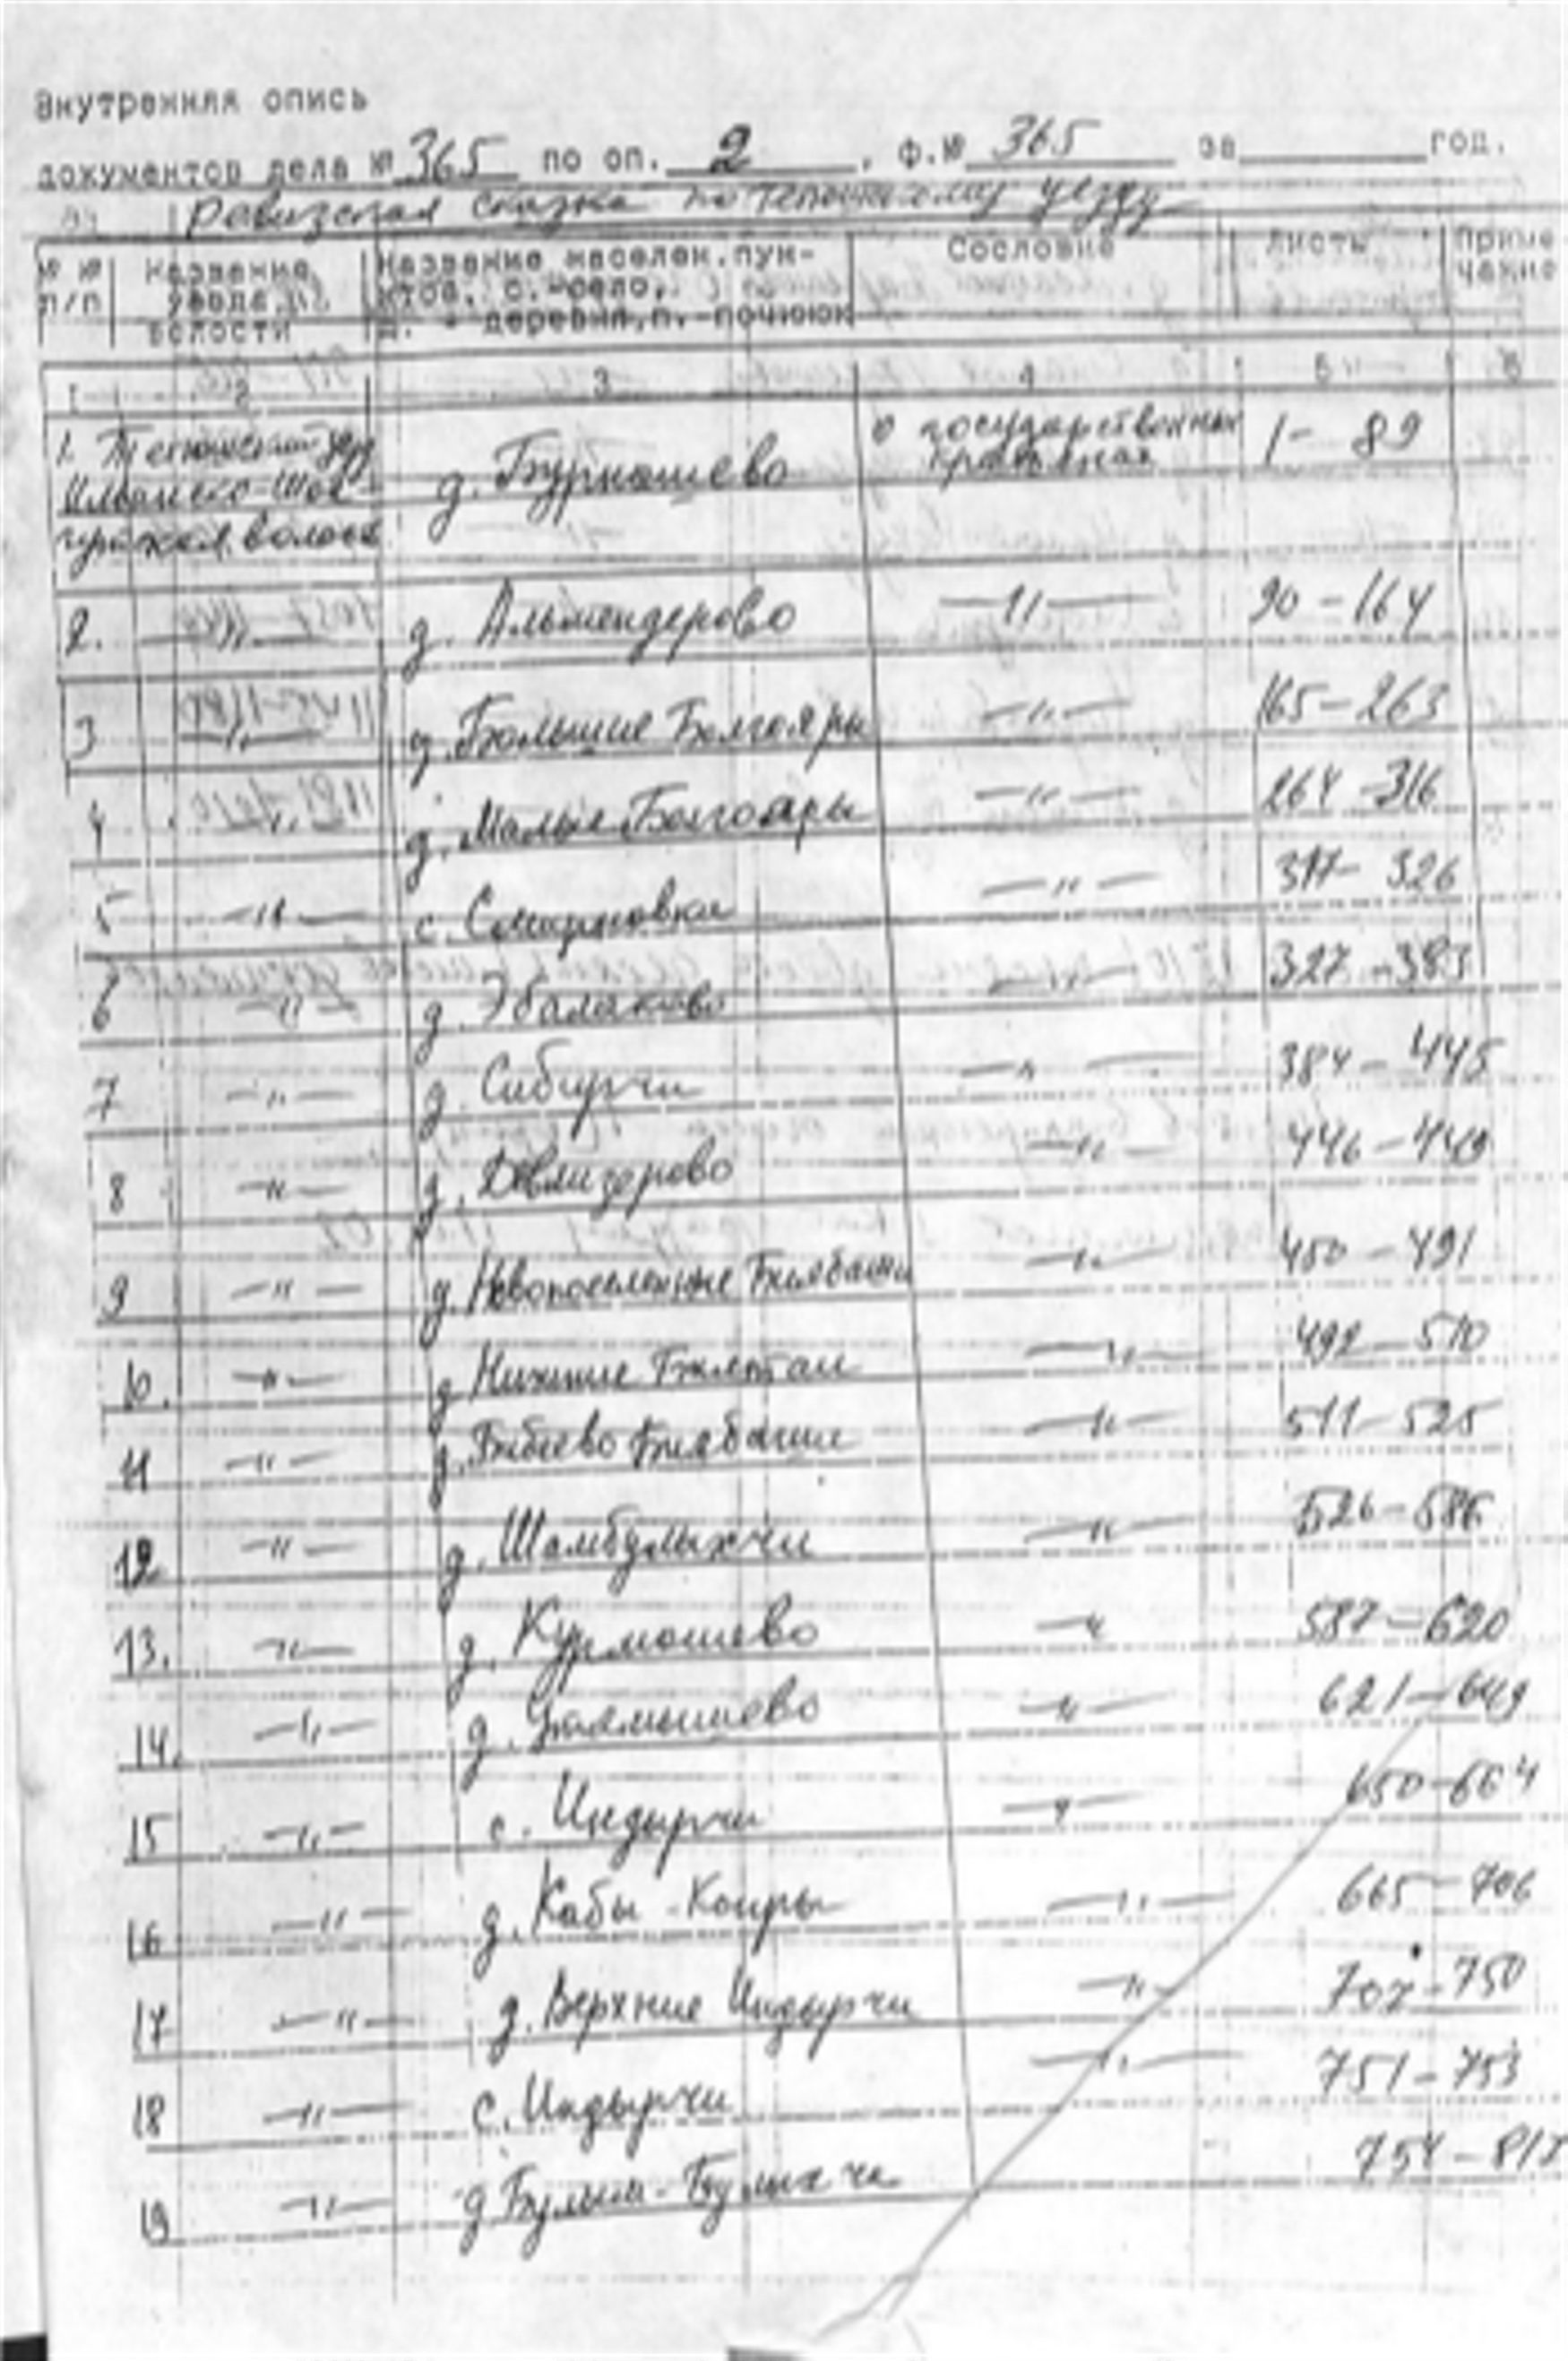 Внутренняя опись
документов дела № 365 по оп. 2 , ф.№ 365 за год.
Ревизская сказка по Тетюшскому уезду
№ № п/п Название уезда, волости Название населен.пунктов, с.-село, д. - деревня,п.-починок Сословие Листы Приме чание
1 2 3 4 5 6
1. Тетюшский уезд д. Бурнашево о государственных крестьянах 1- 89
волость
2. —"— д. Альмендерово —"— 90 - 164
3 —"— д. Большие Болгояры —"— 165-263
4 —"— д. Малые Болгояры —"— 264-316
5 —"— с. —"— 317- 326
6 —"— д. Эбалаково —"— 327-383
7 —"— д. Сибирчи —"— 384-445
8 —"— д. Девлизерово —"— 446-449
9 —"— д. Новопоселенные Биябаши —"— 450-491
10. —"— д. Нижние —"— 492-510
11 —"— д. Бибеево Биябаши —"— 511-525
12 —"— д. Шамбулыхчи —"— 526-586
13. —"— д. Курмашево —"— 587-620
14. —"— д. —"— 621-649
15 —"— с. Индырчи —"— 650-664
16 —"— д. Кабы - Копры —"— 665-706
17 —"— д. Верхние Индырчи —"— 707-750
18 —"— с. Индырчи —"— 751-753
19 —"— д. 754-817